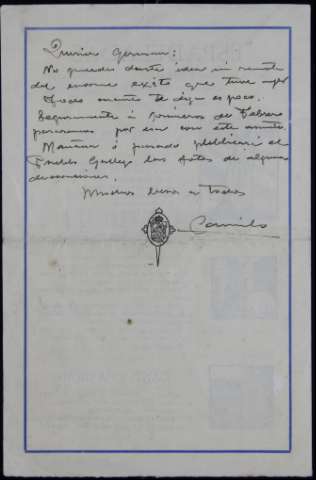 Querido German:
No puedes darte idea ni remota
del enorme exito que tuve ayer
todo cuanto te diga es poco.
Seguramente á primeros de Febrero
pasaremos por esa con este asunto.
Mañana ó pasado publicará el
Pueblo Gallego las fotos de algunas
decoraciones.
Muchos besos a todos
Camilo